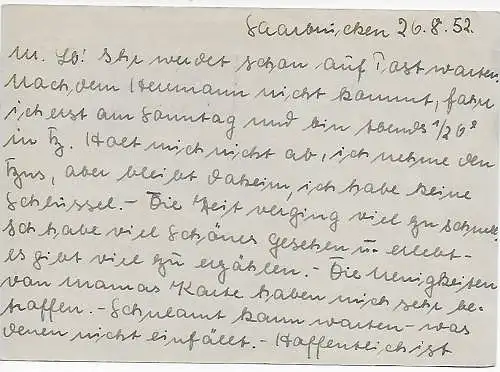 Saarbrücken 26.8.52.
M. Lb! Ihr werdet schon auf Post warten.
Nachdem Hermann nicht kommt, fahre
ich erst am Sonntag und bin Abends 1/2 6
in Fz. Holt mich nicht ab, ich nehme den
aber bleibt daheim, ich habe keine
Schlüssel. - Die Zeit verging viel zu schnell.
Ich habe viel Schönes gesehen u. erlebt -
es gibt viel zu erzählen. - Die Neuigkeiten
von Mamas Karte haben mich sehr be-
troffen. - Schulamt kann warten - was
denen nicht einfällt. - Hoffentlich ist